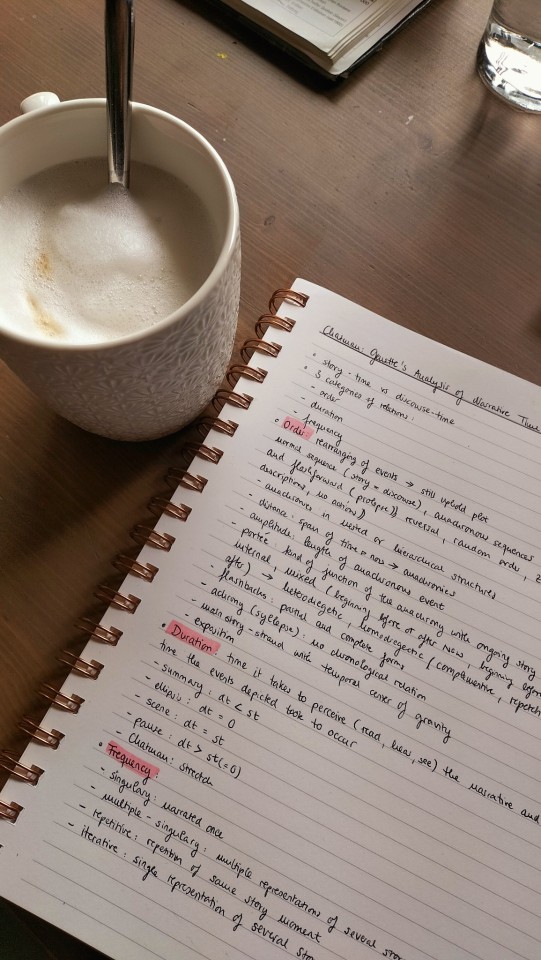 Chatman: Genette's Analysis of Narrative Time
• story-time vs discourse-time
• 3 categories of relations:
- order
- duration
- frequency
• Order: rearranging of events → still uphold plot
normal sequence (story = discourse), anachronous sequences
and flashforward (prolepse)) reversal, random order,
descriptions, no actions))
- anachronies in nested or hierarchical structures
- distance: span of time → now → anachronies
- amplitude: length of anachronous event
- portée: kind of function of the anachrony with ongoing story
internal, mixed (beginning before or after now, beginning before
after) → heterodiegetic, homodiegetic (complementive,
- flashbacks: partial and complete forms
- achrony (syllepse): no chronological relation
- main story-strand with temporal center of gravity
- exposition
• Duration: time it takes to perceive (read, hear, see) the narrative and
time the events depicted took to occur
- summary: dt < st
- ellipsis: dt = 0
- scene: dt = st
- pause: dt > st (=0)
- Chatman: stretch
• Frequency:
- singulary: narrated once
- multiple-singulary: multiple representations of several
- repetitive: repetition of same story moment
- iterative: single representation of several